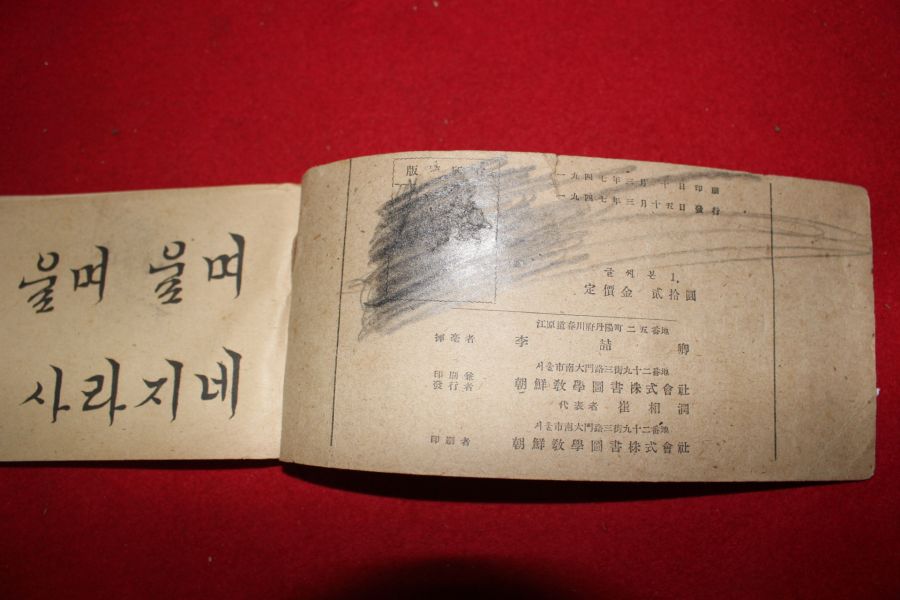 울며 울며
사라지네
版
一九四七年三月 十日印刷
一九四七年三月十五日發行
글씨본 1.
定價金 貳拾圓
江原道春川府丹陽町二五番地
揮毫者 李喆卿
서울市南大門路三街九十二番地
印刷兼發行者 朝鮮敎學圖書株式會社
代表者 崔相潤
서울市南大門路三街九十二番地
印刷者 朝鮮敎學圖書株式會社